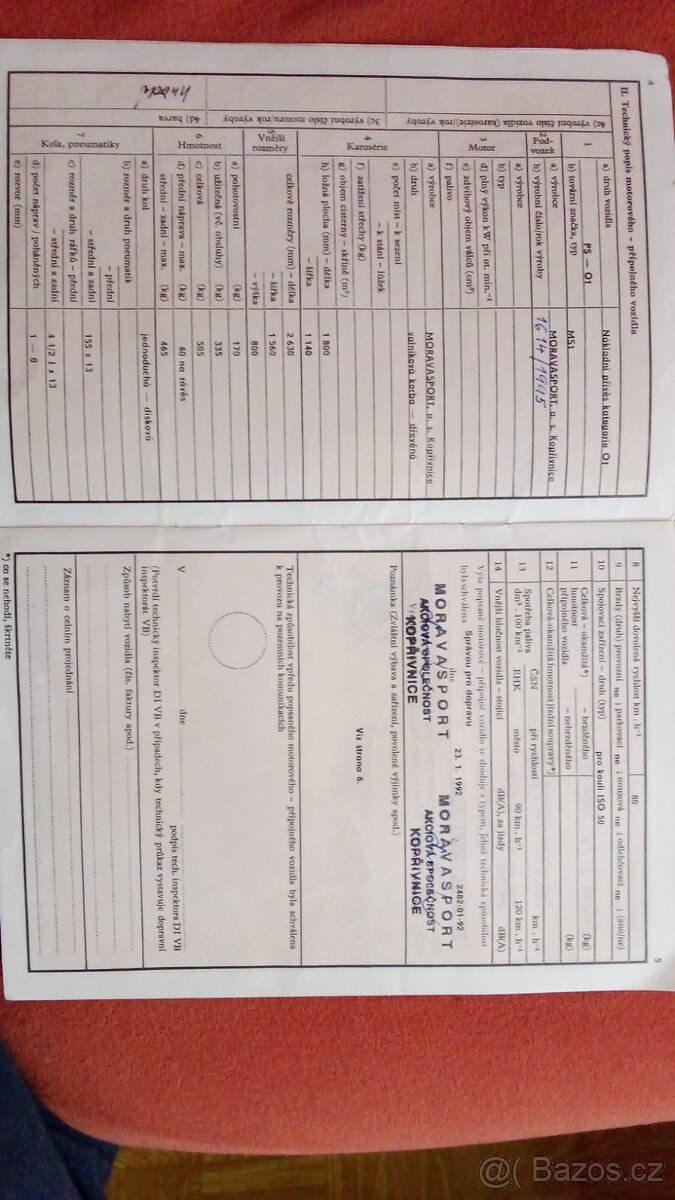 4
II. Technický popis motorového – přípojného vozidla
1
a) druhu vozidla
PS — O1
Nákladní přívěs kategorie O1
b) tovární značka, typ
MS1
2
Pod-
vozek
a) výrobce
MORAVASPORT, a. s. Kopřivnice
b) výrobní číslo/rok výroby
1614/1995
3
Motor
a) výrobce
b) typ
d) plný výkon kW při ot. min.⁻¹
e) zdvihový objem válců (cm³)
f) palivo
4
Karosérie
a) výrobce
MORAVASPORT, a. s. Kopřivnice
b) druh
valníková korba — dřevěná
e) počet míst – k sezení
– k stání – lůžek
f) zatížení střechy (kg)
g) objem cisterny – skříně (m³)
h) ložná plocha (mm) – délka
1 800
– šířka
1 140
5
Vnější
rozměry
celkové rozměry (mm) – délka
2 630
– šířka
1 560
– výška
800
6
Hmotnost
a) pohotovostní (kg)
170
b) užitečná (vč. obsluhy) (kg)
335
c) celková (kg)
505
d) přední náprava – max. (kg)
40 na závěs
střední – zadní – max. (kg)
465
7
Kola, pneumatiky
a) druh kol
jednoduchá — disková
b) rozměr a druh pneumatik
– přední
– střední a zadní
155 x 13
c) rozměr a druh ráfků – přední
– střední a zadní
4 1/2 J x 13
d) počet náprav / poháněných
1 — 0
e) rozvor (mm)
4c) výrobní číslo vozidla (karosérie)/rok výroby
3c) výrobní číslo motoru/rok výroby
4d) barva
5
8
Nejvyšší dovolená rychlost km . h⁻¹
80
9
Brzdy (druh) provozní ne ; parkovací ne ; nouzová ne ; odlehčovací ne ; (ano/ne)
10
Spojovací zařízení – druh (typ)
pro kouli ISO 50
11
Celková – okamžitá*)
hmotnost
přípojného vozidla
– brzděného (kg)
– nebrzděného (kg)
12
Celková-okamžitá hmotnost jízdní soupravy*)
13
Spotřeba paliva
dm³ . 100 km⁻¹
ČSN
při rychlosti
km . h⁻¹
EHK
město
90 km . h⁻¹
120 km . h⁻¹
14
Vnější hlučnost vozidla – stojící
dB(A), za jízdy
dB(A)
Výše popsané motorové – přípojné vozidlo se shoduje s typem, jehož technická způsobilost
byla schválena Správou pro dopravu
dne
23. 1. 1992
2482-01-92
MORAVASPORT
AKCIOVÁ SPOLEČNOST
KOPŘIVNICE
MORAVASPORT
AKCIOVÁ SPOLEČNOST
KOPŘIVNICE
Poznámka (Zvláštní výbava a zařízení, povolené výjimky apod.)
Viz strana 6.
Technická způsobilost vpředu popsaného motorového – přípojného vozidla byla schválena
k provozu na pozemních komunikacích
V
dne
podpis tech. inspektora DI VB
(Potvrdí technický inspektor DI VB v případech, kdy technický průkaz vystavuje dopravní
inspektorát VB)
Způsob nabytí vozidla (čís. faktury apod.)
Záznam o celním projednání
*) co se nehodí, škrtněte
@ Bazos.cz